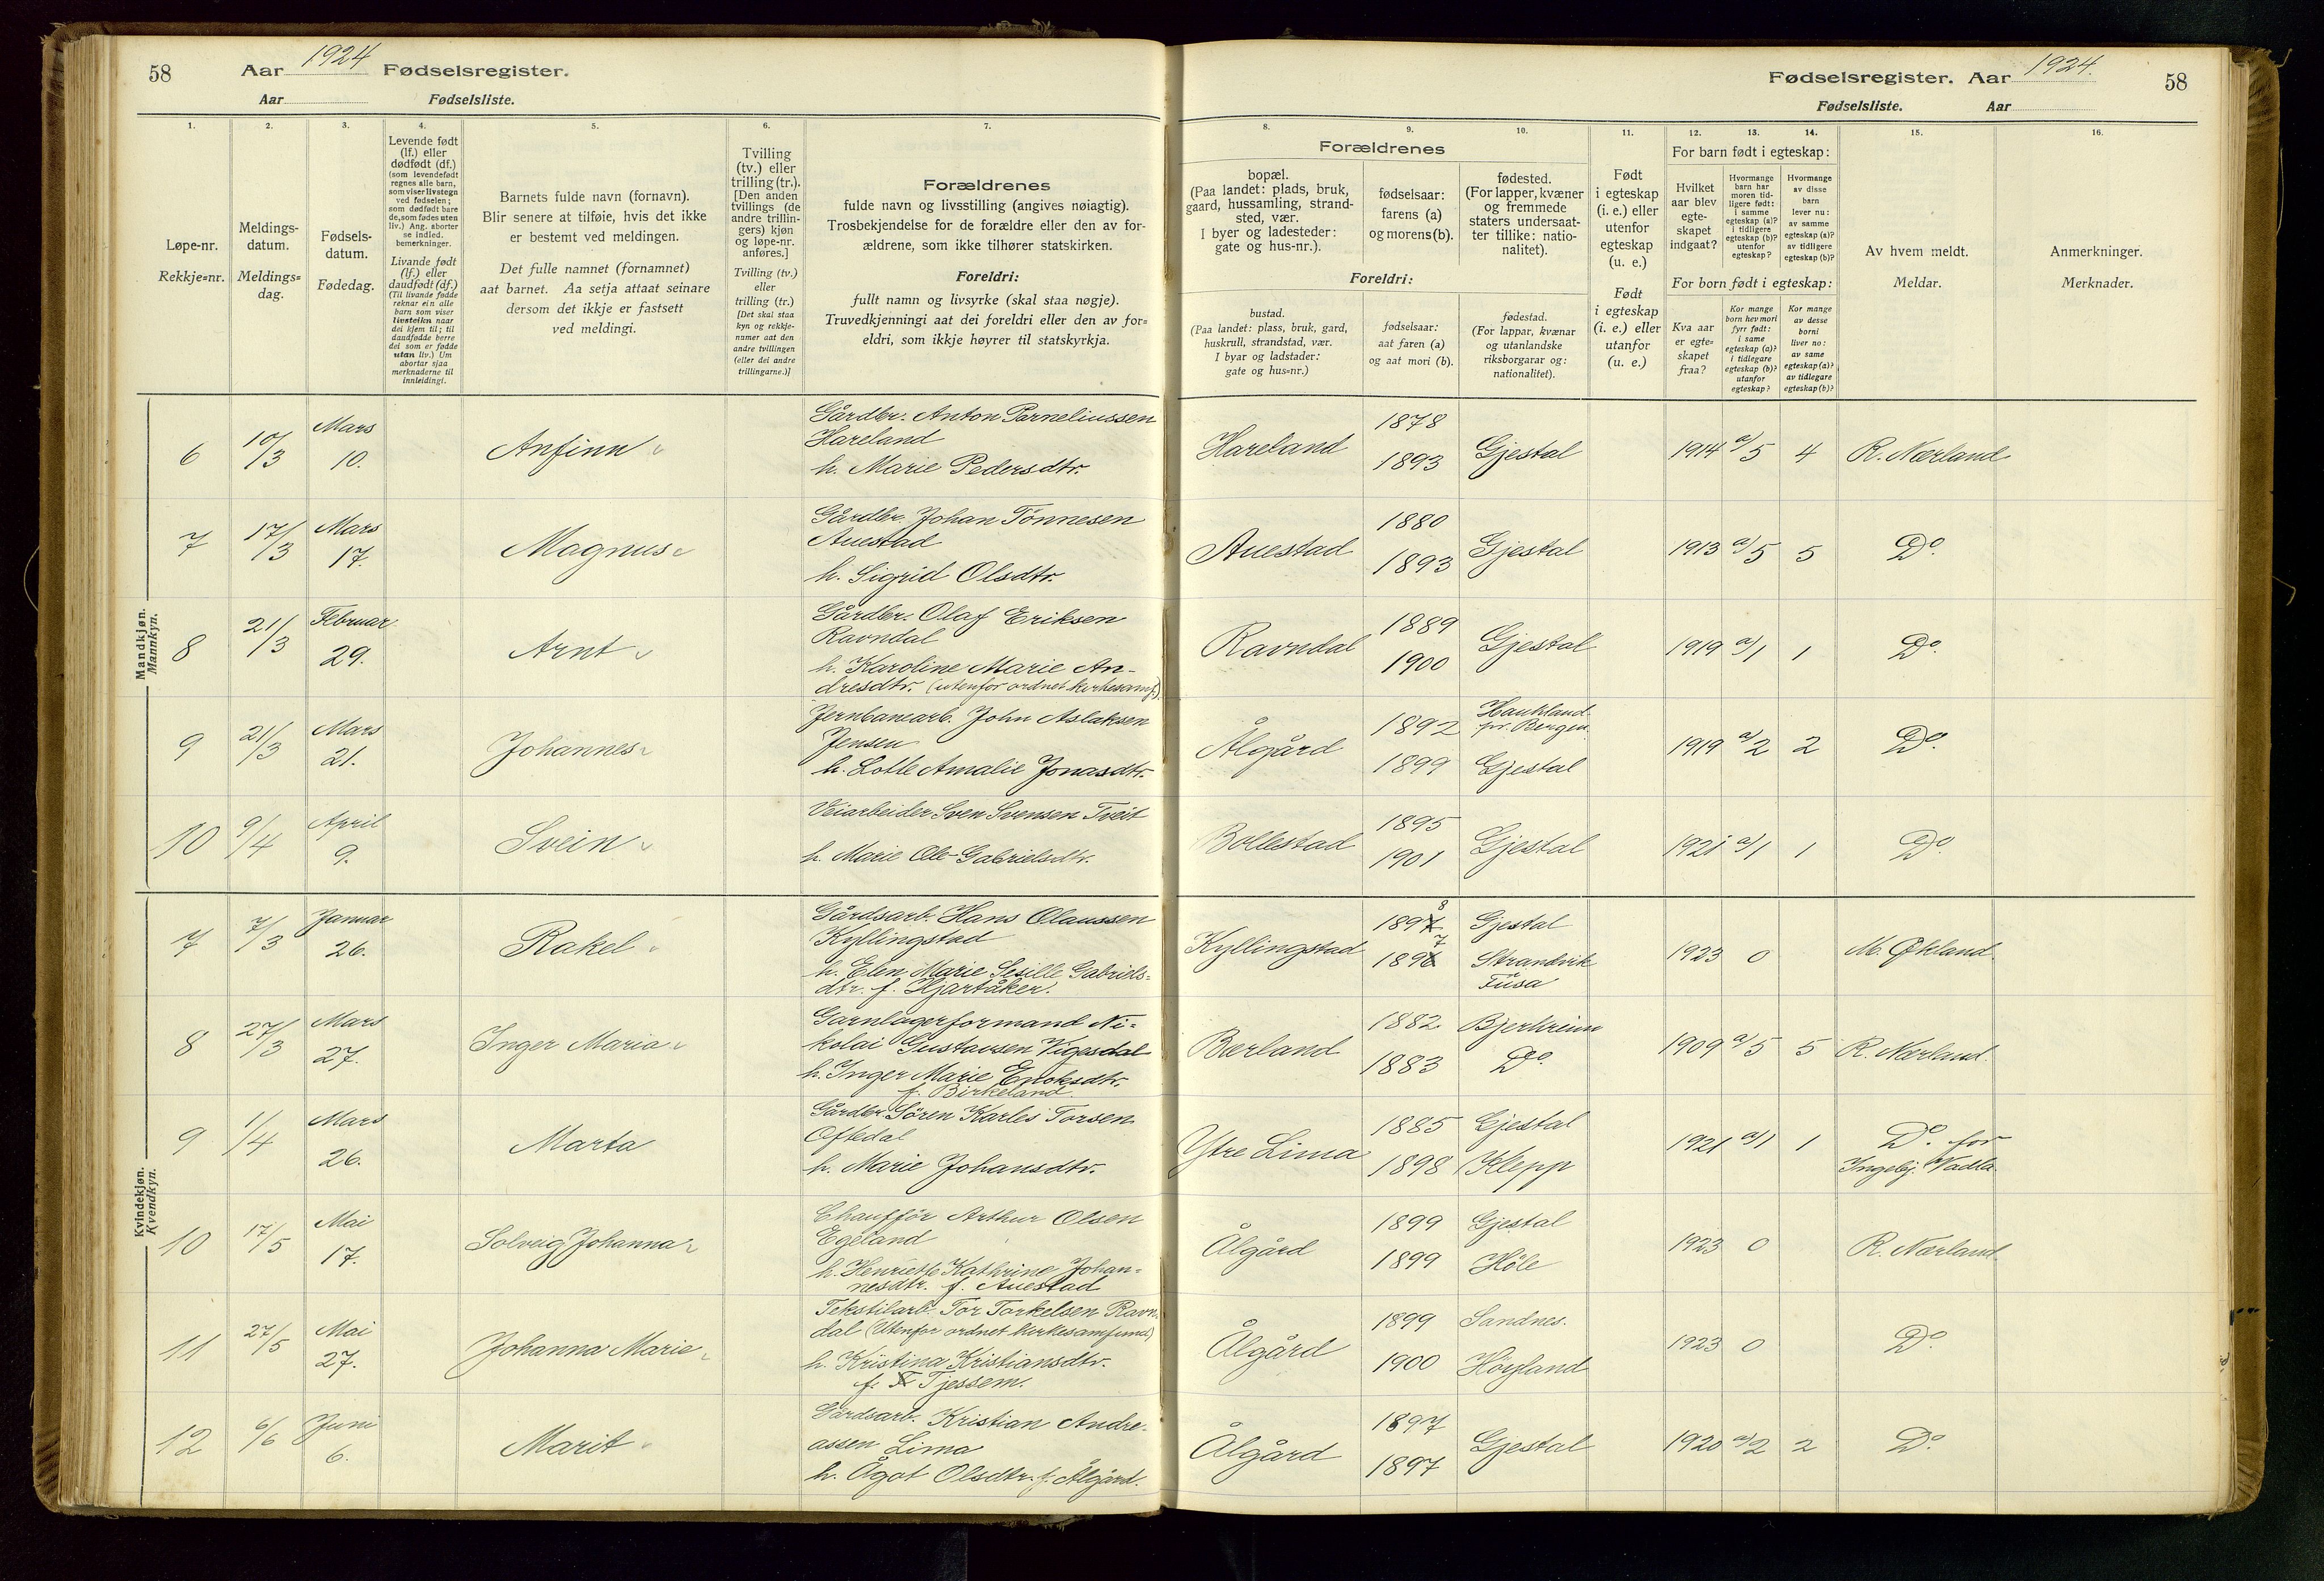 58
Aar 1924
Fødselsregister.
Aar
Fødselsliste.
Fødselsregister. Aar 1924.
58
Fødselsliste.
Aar
1.
2.
3.
4.
5.
6.
7.
8.
9.
10.
11.
12.
13.
14.
15.
16.
Løpe-nr.
Rekkje=nr.
Meldings-
datum.
Meldings=
dag.
Fødsels-
datum.
Fødedag.
Levende født
(lf.) eller
dødfødt (df.)
(som levendefødt
regnes alle barn,
som viser livstegn
ved fødselen;
som dødfødt bare
de, som fødes uten
liv.) Ang. aborter
se indled.
bemerkninger.
Livande født
(lf.) eller
daudfødt (df.)
(Til livande fødde
reknar ein alle
barn som viser
livsteikn naar
dei kjem til; til
daudfødde berre
dei som er fødde
utan liv.) Um
abortar sjaa
merknaderne til
innleidingi.
Barnets fulde navn (fornavn).
Blir senere at tilføie, hvis det ikke
er bestemt ved meldingen.
Det fulle namnet (fornamnet)
aat barnet. Aa setja attaat seinare
dersom det ikkje er fastsett
ved meldingi.
Tvilling
(tv.) eller
trilling (tr.).
[Den anden
tvillings (de
andre trillin-
gers) kjøn
og løpe-nr.
anføres.]
Tvilling (tv.)
eller
trilling (tr.)
[Det skal staa
kyn og rekkje-
numer aat den
andre tvillingen
(eller dei andre
trillingarne.)]
Forældrenes
fulde navn og livsstilling (angives nøiagtig).
Trosbekjendelse for de forældre eller den av for-
ældrene, som ikke tilhører statskirken.
Foreldri:
fullt namn og livsyrke (skal staa nøgje).
Truvedkjenningi aat dei foreldri eller den av for=
eldri, som ikkje høyrer til statskyrkja.
Forældrenes
bopæl.
(Paa landet: plads, bruk,
gaard, hussamling, strand-
sted, vær.
I byer og ladesteder:
gate og hus-nr.).
fødselsaar:
farens (a)
og morens (b).
fødested.
(For lapper, kvæner
og fremmede
staters undersaat-
ter tillike: natio-
nalitet).
Foreldri:
bustad.
(Paa landet: plass, bruk, gard,
huskrull, strandstad, vær.
I byar og ladstader:
gate og hus=nr.)
fødselsaar:
aat faren (a)
og aat mori (b).
fødestad.
(For lappar, kvænar
og utanlandske
riksborgarar og:
nationalitet).
Født
i egteskap
(i. e.) eller
utenfor
egteskap
(u. e.)
Født
i egteskap
(i. e.) eller
utanfor
(u. e.)
For barn født i egteskap:
Hvilket
aar blev
egte-
skapet
indgaat?
Hvormange
barn har
moren tid-
ligere født:
i samme
egteskap (a)?
i tidligere
egteskap (b)?
utenfor
egteskap?
Hvormange
av disse
barn
lever nu:
av samme
egteskap (a)?
av tidligere
egteskap (b)?
For born født i egteskap:
Kva aar
er egte=
skapet
fraa?
Kor mange
born hev mori
fyrr født:
i same
egteskap (a)?
i tidlegare
egteskap (b)?
utanfor
egteskap?
Kor mange
av desse
borni
liver no:
av same
egteskap (a)?
av tidlegare
egteskap (b)?
Av hvem meldt.
Meldar.
Anmerkninger.
Merknader.
Mandkjøn.
Mannkyn.
6 10/3 Mars 10. Anfinn
Gårdbr. Anton Parneliussen
Hareland
h. Marie Pedersdtr.
Hareland 1878 1893 Gjestal 1914 a/5 4 R. Nærland
7 17/3 Mars 17. Magnus
Gårdbr. Johan Tönnesen
Auestad
h. Sigrid Olsdtr.
Auestad 1880 1893 Gjestal 1913 a/5 5 Do.
8 21/3 Februar 29. Arnt
Gårdbr. Olaf Eriksen
Ravndal
h. Karoline Marie An-
dresdtr. (utenfor ordnet kirkesamf.)
Ravndal 1889 1900 Gjestal 1919 a/1 1 Do.
9 21/3 Mars 21. Johannes
Jernbanearb. John Aslaksen
Jensen
h. Lotte Amalie Jonasdtr.
Ålgård 1892 Haukland pr. Bergen. 1899 Gjestal 1919 a/2 2 Do.
10 9/4 April 9. Svein
Veiarbeider Sven Svensen Tveit
h. Marie Ole-Gabrielsdtr.
Bollestad 1895 1901 Gjestal 1921 a/1 1 Do.
Kvindekjøn.
Kvendkyn.
7 7/3 Januar 26. Rakel
Gårdsarb. Hans Olaussen
Kyllingstad
h. Elen Marie Sesille Gabriels=
dtr. f. Hjartåker.
Kyllingstad 1897 8 Gjestal 1896 7 Strandvik Fusa 1923 0 M. Økland.
8 27/3 Mars 27. Inger Maria
Garnlagerformand Ni=
kolai Gustavsen Vigesdal
h. Inger Marie Enoksdtr.
f. Birkeland.
Bærland 1882. Bjerkreim 1883 Do. 1909 a/5 5 R. Nærland.
9 1/4 Mars 26. Marta
Gårdbr. Sören Karles Torsen
Oftedal
h. Marie Johansdtr.
Ytre Lima 1885 Gjestal 1898 Klepp 1921 a/1 1 Do. for
Ingebj. Vadla
10 17/5 Mai 17. Solveig Johanna
Chaufför Arthur Olsen
Egeland
h. Henriette Kathrine Johan=
nesdtr. f. Auestad
Ålgård 1899 Gjestal 1899 Höle 1923 0 R. Nærland.
11 27/5 Mai 27. Johanna Marie
Tekstilarb. Tor Torkelsen Ravn-
dal (Utenfor ordnet kirkesamfund)
h. Kristina Kristiansdtr.
f. Tjessem.
Ålgård 1899 Sandnes. 1900 Höyland 1923 0 Do.
12 6/6 Juni 6. Marit
Gårdsarb. Kristian Andre-
assen Lima
h. Ågot Olsdtr. f. Ålgård.
Ålgård 1897 1897 Gjestal 1920 a/2 2 Do.